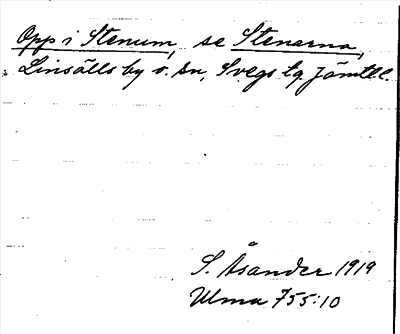 Opp i Stenum, se Stenarna,
Linsälls by o. sn, Svegs tg. Jämtl.l.
S. Åsander 1919
Ulma 755:10